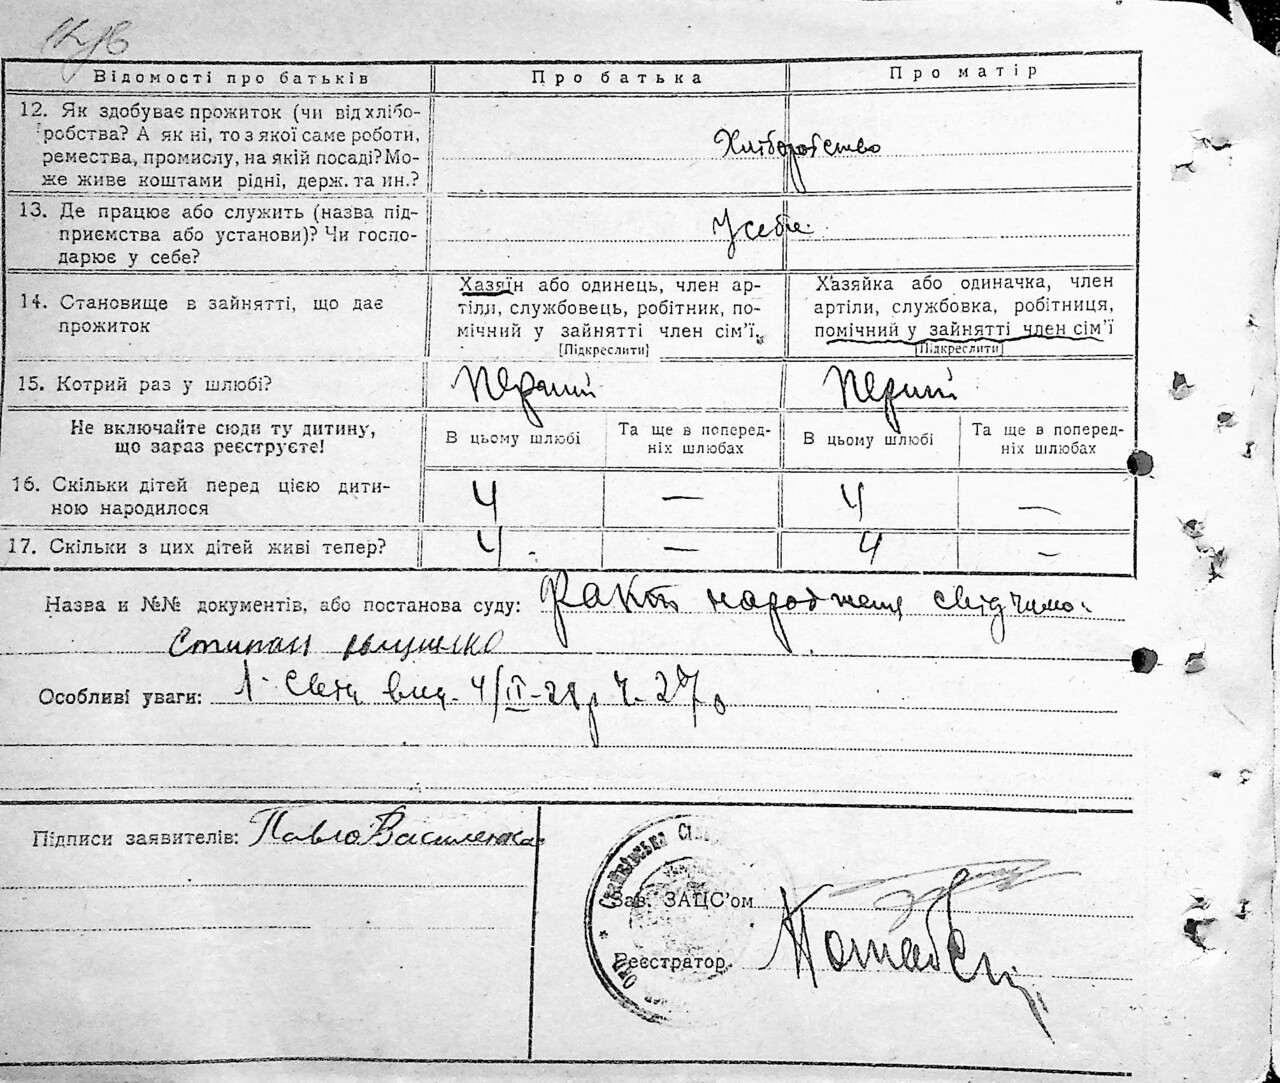 Відомості про батьків
Про батька
Про матір
12. Як здобуває прожиток (чи від хлібо-
робства? А як ні, то з якої саме роботи,
ремества, промислу, на якій посаді? Мо-
же живе коштами рідні, держ. та ин.?
Хліборобство
13. Де працює або служить (назва під-
приємства або установи)? Чи госпо-
дарює у себе?
У себе
14. Становище в зайнятті, що дає
прожиток
Хазяїн або одинець, член ар-
тіли, службовець, робітник, по-
мічний у зайнятті член сім'ї.
[Підкреслити]
Хазяйка або одиначка, член
артіли, службовка, робітниця,
помічний у зайнятті член сім'ї
[Підкреслити]
15. Котрий раз у шлюбі?
Перший
Перший
Не включайте сюди ту дитину,
що зараз реєструєте!
В цьому шлюбі
Та ще в поперед-
ніх шлюбах
В цьому шлюбі
Та ще в поперед-
ніх шлюбах
16. Скільки дітей перед цією дити-
ною народилося
4 — 4 —
17. Скільки з цих дітей живі тепер?
4 — 4 —
Назва и №№ документів, або постанова суду: Факт народження свідчимо:
Степан
Особливі уваги: 4/II-28р ч. 27
Підписи заявителів: Павло Василенко
Зав. ЗАЦС'ом
Реєстратор